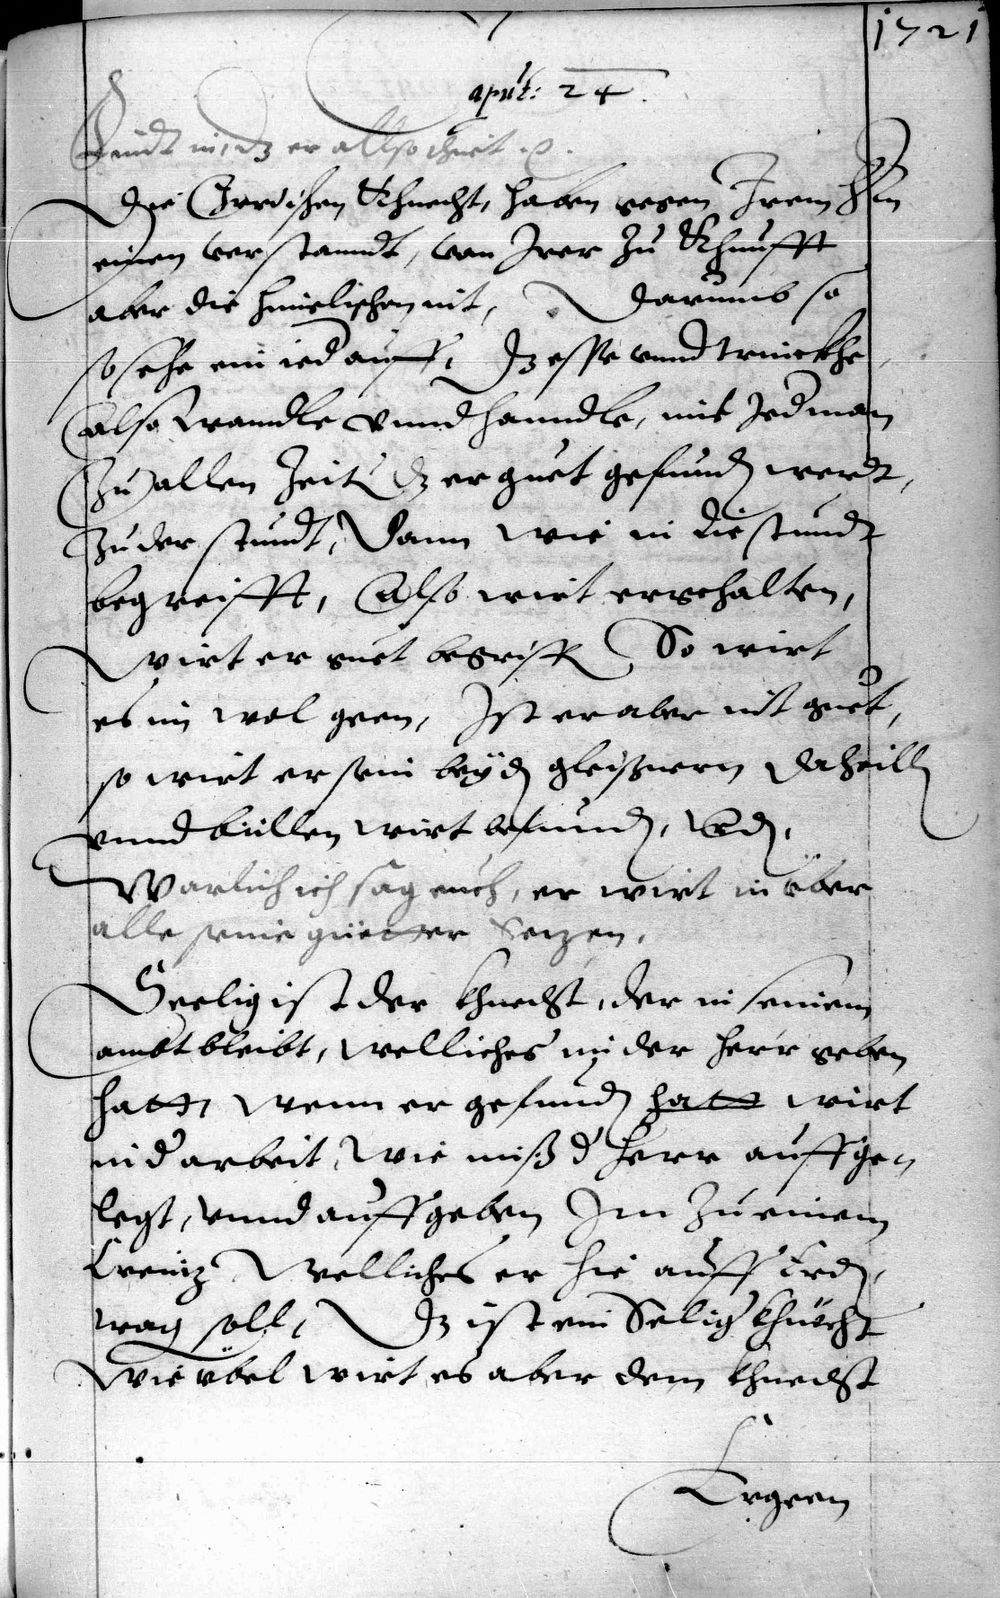 1721
aput: 24.
Findt in, dz er allso thuet
Die Irrdischen Khnecht, haben gegen Irem Hrn
einen verstanndt, von Irer Zu Khunfft
aber die himelischen nit, Darumb so
so sehe ein ied auff, dz esse vnnd trinckhe
also wanndle vnnd hanndle, mit Jed man
Zu allen Zeit dz er guet gefund werdt,
Zu der stundt, Dann wie in die stundt
begreifft, Also wirt er behalten,
Wirt er guet begriff So wirt
es im wol geen, Ist er aber nit guet,
so wirt er sein bey d gleissnern da heill
vnnd büllen wirt befund,
Warlich ich sag euch, er wirt in über
alle seine güetter Setzen,
Seelig ist der khnecht, der in seinem
ambt bleibt, welliches im der herr geben
hatt, wenn er gefund hatt wirt
in d arbeit, wie mss d herr auff gen
legt, vnnd auffgeben Im Zu einem
Creutz Welliches er hie auff Erd,
trag soll, Dz ist ein Selig khnecht
Wie übel wirt es aber dem khnecht
Ergeen